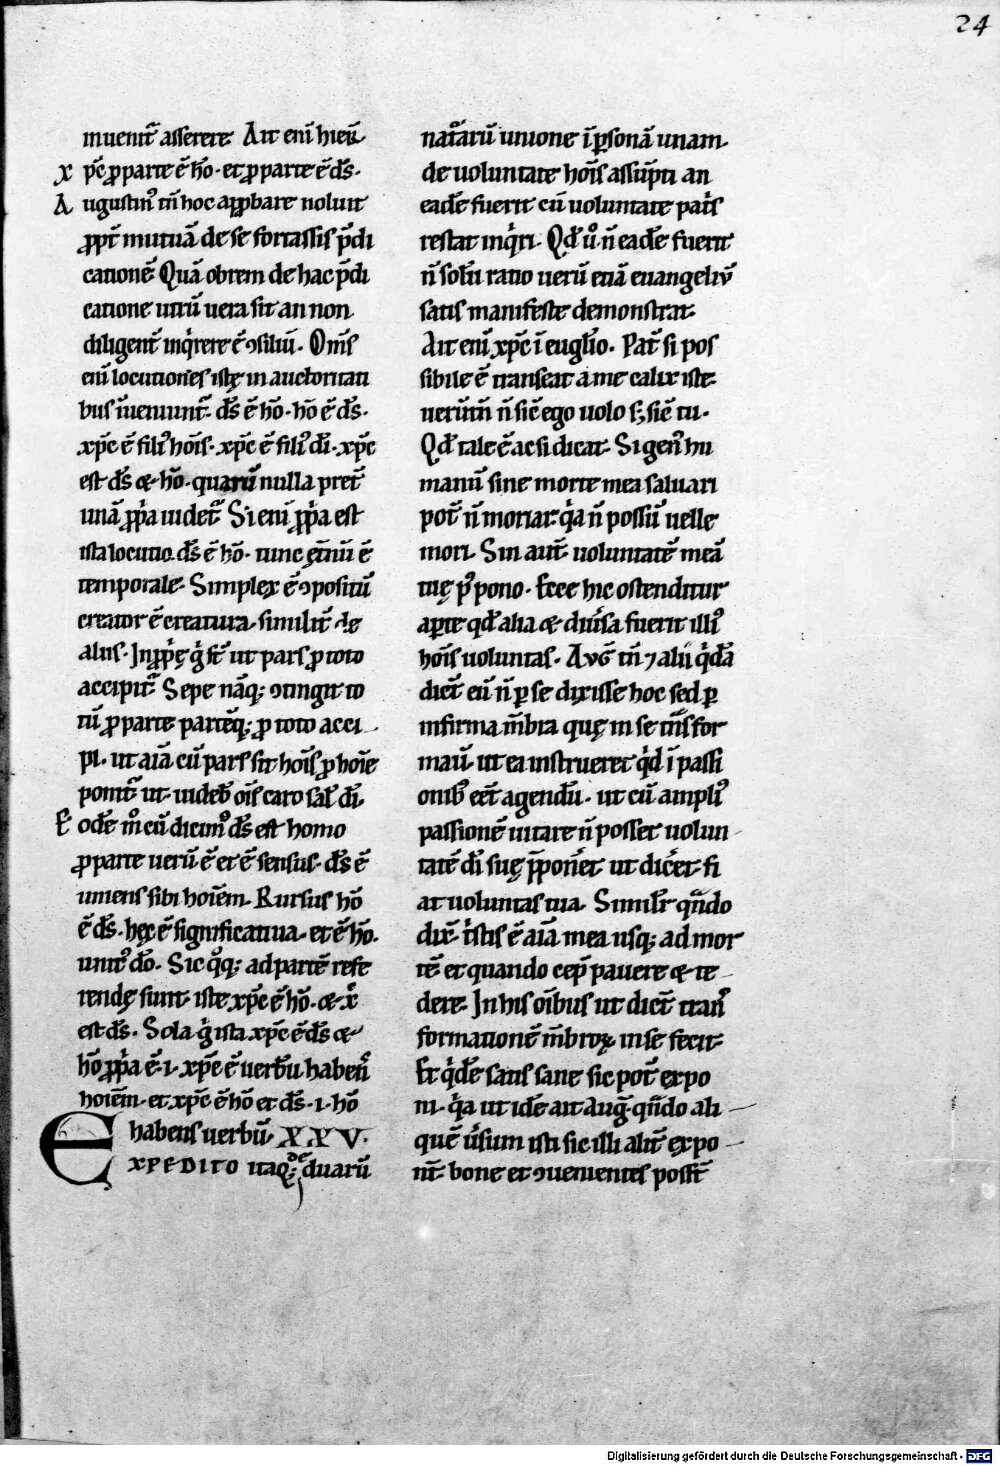 24
muenit̃ asserere. Ait eni᷑ hier̃.
x p̃c ꝓ parte ẽ hõ. et ꝓ parte ẽ d̃s.
A ugustin᷒ tñ hoc app̱bare noluit
ꝓpt̃ mutuã de se fortassis p̃di
cationẽ Quã obrem de hac p̃di
catione utrũ uera sit an non
diligent̃ inq̇rere ẽ ꝯsiliũ. Om̃s
eni᷑ locutiones istę in auctoritati
bus iñueniunt̃. d̃s ẽ hõ. hõ ẽ d̃s.
xp̃c ẽ fili᷒ hoĩs. xp̃c ẽ fili᷒ dĩ. xp̃c
est d̃s & hõ. quarũ nulla pret̃
unã ꝓp̃a uidet̃. Si eni᷑ ꝓp̃a est
ista locutio. d̃s ẽ hõ. tunc ęt̃nũ ẽ
temporale. Simplex ẽ ꝯpositũ
creator ẽ creatura. similit̃ de
aliis. Inꝓp̃ę g̊ fit̃ ut pars ꝓ toto
accipit̃. Sepe nãq; ꝯtingit to
tũ ꝓ parte partẽq; ꝓ toto acci
pi. ut aĩa cũ pars sit hoĩs ꝓ hoĩe
ponit̃ ut. uideb̃ oĩs caro sal̃. dĩ.
E odẽ m̊ cũ dicim᷒ d̃s est homo
ꝓ parte uerũ ẽ et ẽ sensus. d̃s ẽ
uniens sibi hoĩem. Rursus hõ
ẽ d̃s. hęc ẽ significatiua. et ẽ hõ.
unit᷒ dõ. Sic q̊q; ad partẽ refe
rendę sunt. iste xp̃c ẽ hõ. & x̃
est d̃s. Sola g̊ ista xp̃c ẽ d̃s &
hõ ꝓp̃a ẽ. i. xp̃c ẽ uerbũ habeñ
hoĩem. et xp̃c ẽ hõ et d̃s. i. hõ
habens uerbũ. XXV.
EXPEDITO itaq; de duarũ
nat̃arũ unione ĩ ꝑsonã unam.
de uoluntate hoĩs assũpti an
eadẽ fuerit cũ uoluntate pat̃s
restat inq̇ri. Qd̃ ů ñ eadẽ fuerit
ñ solũ ratio uerũ etiã euangeliũ
satis manifeste demonstrat.
Ait eni᷑ xp̃c ĩ eugl̃io. Pat̃ si pos
sibile ẽ transeat a me calix iste.
uerũtñ ñ sic̃ ego uolo s; sic̃ tu.
Qd̃ tale ẽ ac si dicat. Si gen᷒ hu
manũ sine morte mea saluari
pot̃ ñ moriar. q̇a ñ possũ uelle
mori. Sin aut̃ uoluntatẽ meã
tuę p̃pono. Ecce hic ostenditur
aꝑte qd̃ alia & diũsa fuerit illi᷒
hoĩs uoluntas. Avḡ tñ ⁊ alii q̇dã
dict̃ eũ ñ ꝑ se dixisse hoc sed ꝑ
infirma m̃bra quę in se t̃nsfor
mauit̃. ut ea instrueret q̇d ĩ passi
onib᷒ eẽt agendũ. ut cũ ampli᷒
passionẽ uitare ñ posset uolun
tatẽ dĩ suę p̃ponẽt ut dic̃et. fi
at uoluntas tua. Similr̃ qñdo
dix̃. t̃stis ẽ aĩa mea usq; ad mor
tẽ et quando cep̃ pauere & te
dere. In his oĩbus ut dict̃ tran᷒
formationẽ m̃broꝝ in se fecit.
Et q̇dẽ satis sane sic pot̃ expo
ni. q̇a ut idẽ ait Auḡ. qñdo ali
quẽ ũsum isti sic illi alit̃ expo
nt̃. bone et ꝯuenientes posst̃
Digitalisierung gefördert durch die Deutsche Forschungsgemeinschaft - DFG